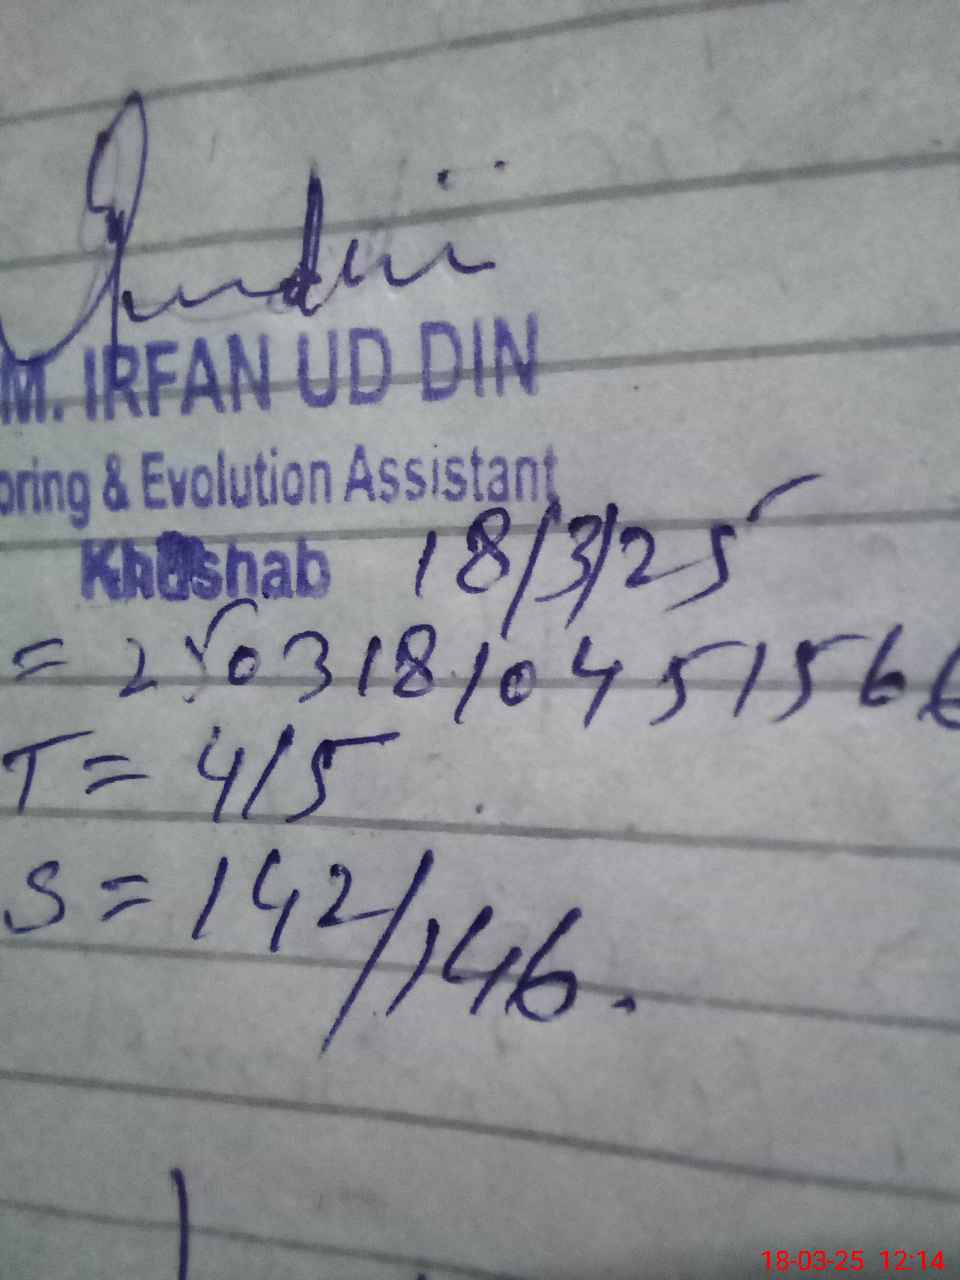 M. IRFAN UD DIN
oring & Evolution Assistant
Khushab 18/3/25
= 25031810451566
T = 4/5
S = 142/146.
18-03-25 12:14